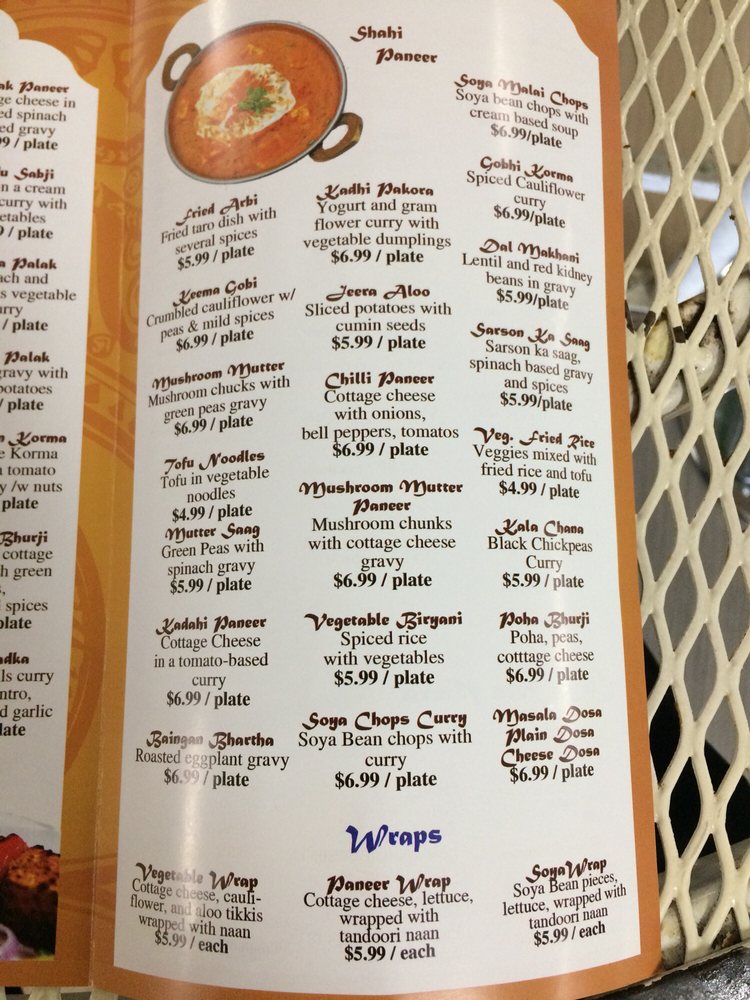 ak Paneer
ge cheese in
ed spinach
ed gravy
99 / plate
u Sabji
n a cream
curry with
etables
9 / plate
a Palak
ach and
s vegetable
urry
/ plate
Palak
gravy with
potatoes
/ plate
n Korma
e Korma
a tomato
y /w nuts
plate
Bhurji
cottage
h green
s,
spices
plate
adka
ls curry
ntro,
d garlic
late
Shahi
Paneer
Fried Arbi
Fried taro dish with
several spices
$5.99 / plate
Keema Gobi
Crumbled cauliflower w/
peas & mild spices
$6.99 / plate
Mushroom Mutter
Mushroom chucks with
green peas gravy
$6.99 / plate
Tofu Noodles
Tofu in vegetable
noodles
$4.99 / plate
Mutter Saag
Green Peas with
spinach gravy
$5.99 / plate
Kadahi Paneer
Cottage Cheese
in a tomato-based
curry
$6.99 / plate
Baingan Bhartha
Roasted eggplant gravy
$6.99 / plate
Kadhi Pakora
Yogurt and gram
flower curry with
vegetable dumplings
$6.99 / plate
Jeera Aloo
Sliced potatoes with
cumin seeds
$5.99 / plate
Chilli Paneer
Cottage cheese
with onions,
bell peppers, tomatos
$6.99 / plate
Mushroom Mutter
Paneer
Mushroom chunks
with cottage cheese
gravy
$6.99 / plate
Vegetable Biryani
Spiced rice
with vegetables
$5.99 / plate
Soya Chops Curry
Soya Bean chops with
curry
$6.99 / plate
Soya Malai Chops
Soya bean chops with
cream based soup
$6.99/plate
Gobhi Korma
Spiced Cauliflower
curry
$6.99/plate
Dal Makhani
Lentil and red kidney
beans in gravy
$5.99/plate
Sarson Ka Saag
Sarson ka saag,
spinach based gravy
and spices
$5.99/plate
Veg. Fried Rice
Veggies mixed with
fried rice and tofu
$4.99 / plate
Kala Chana
Black Chickpeas
Curry
$5.99 / plate
Poha Bhurji
Poha, peas,
cotttage cheese
$6.99 / plate
Masala Dosa
Plain Dosa
Cheese Dosa
$6.99 / plate
Wraps
Vegetable Wrap
Cottage cheese, cauli-
flower, and aloo tikkis
wrapped with naan
$5.99 / each
Paneer Wrap
Cottage cheese, lettuce,
wrapped with
tandoori naan
$5.99 / each
Soya Wrap
Soya Bean pieces,
lettuce, wrapped with
tandoori naan
$5.99 / each